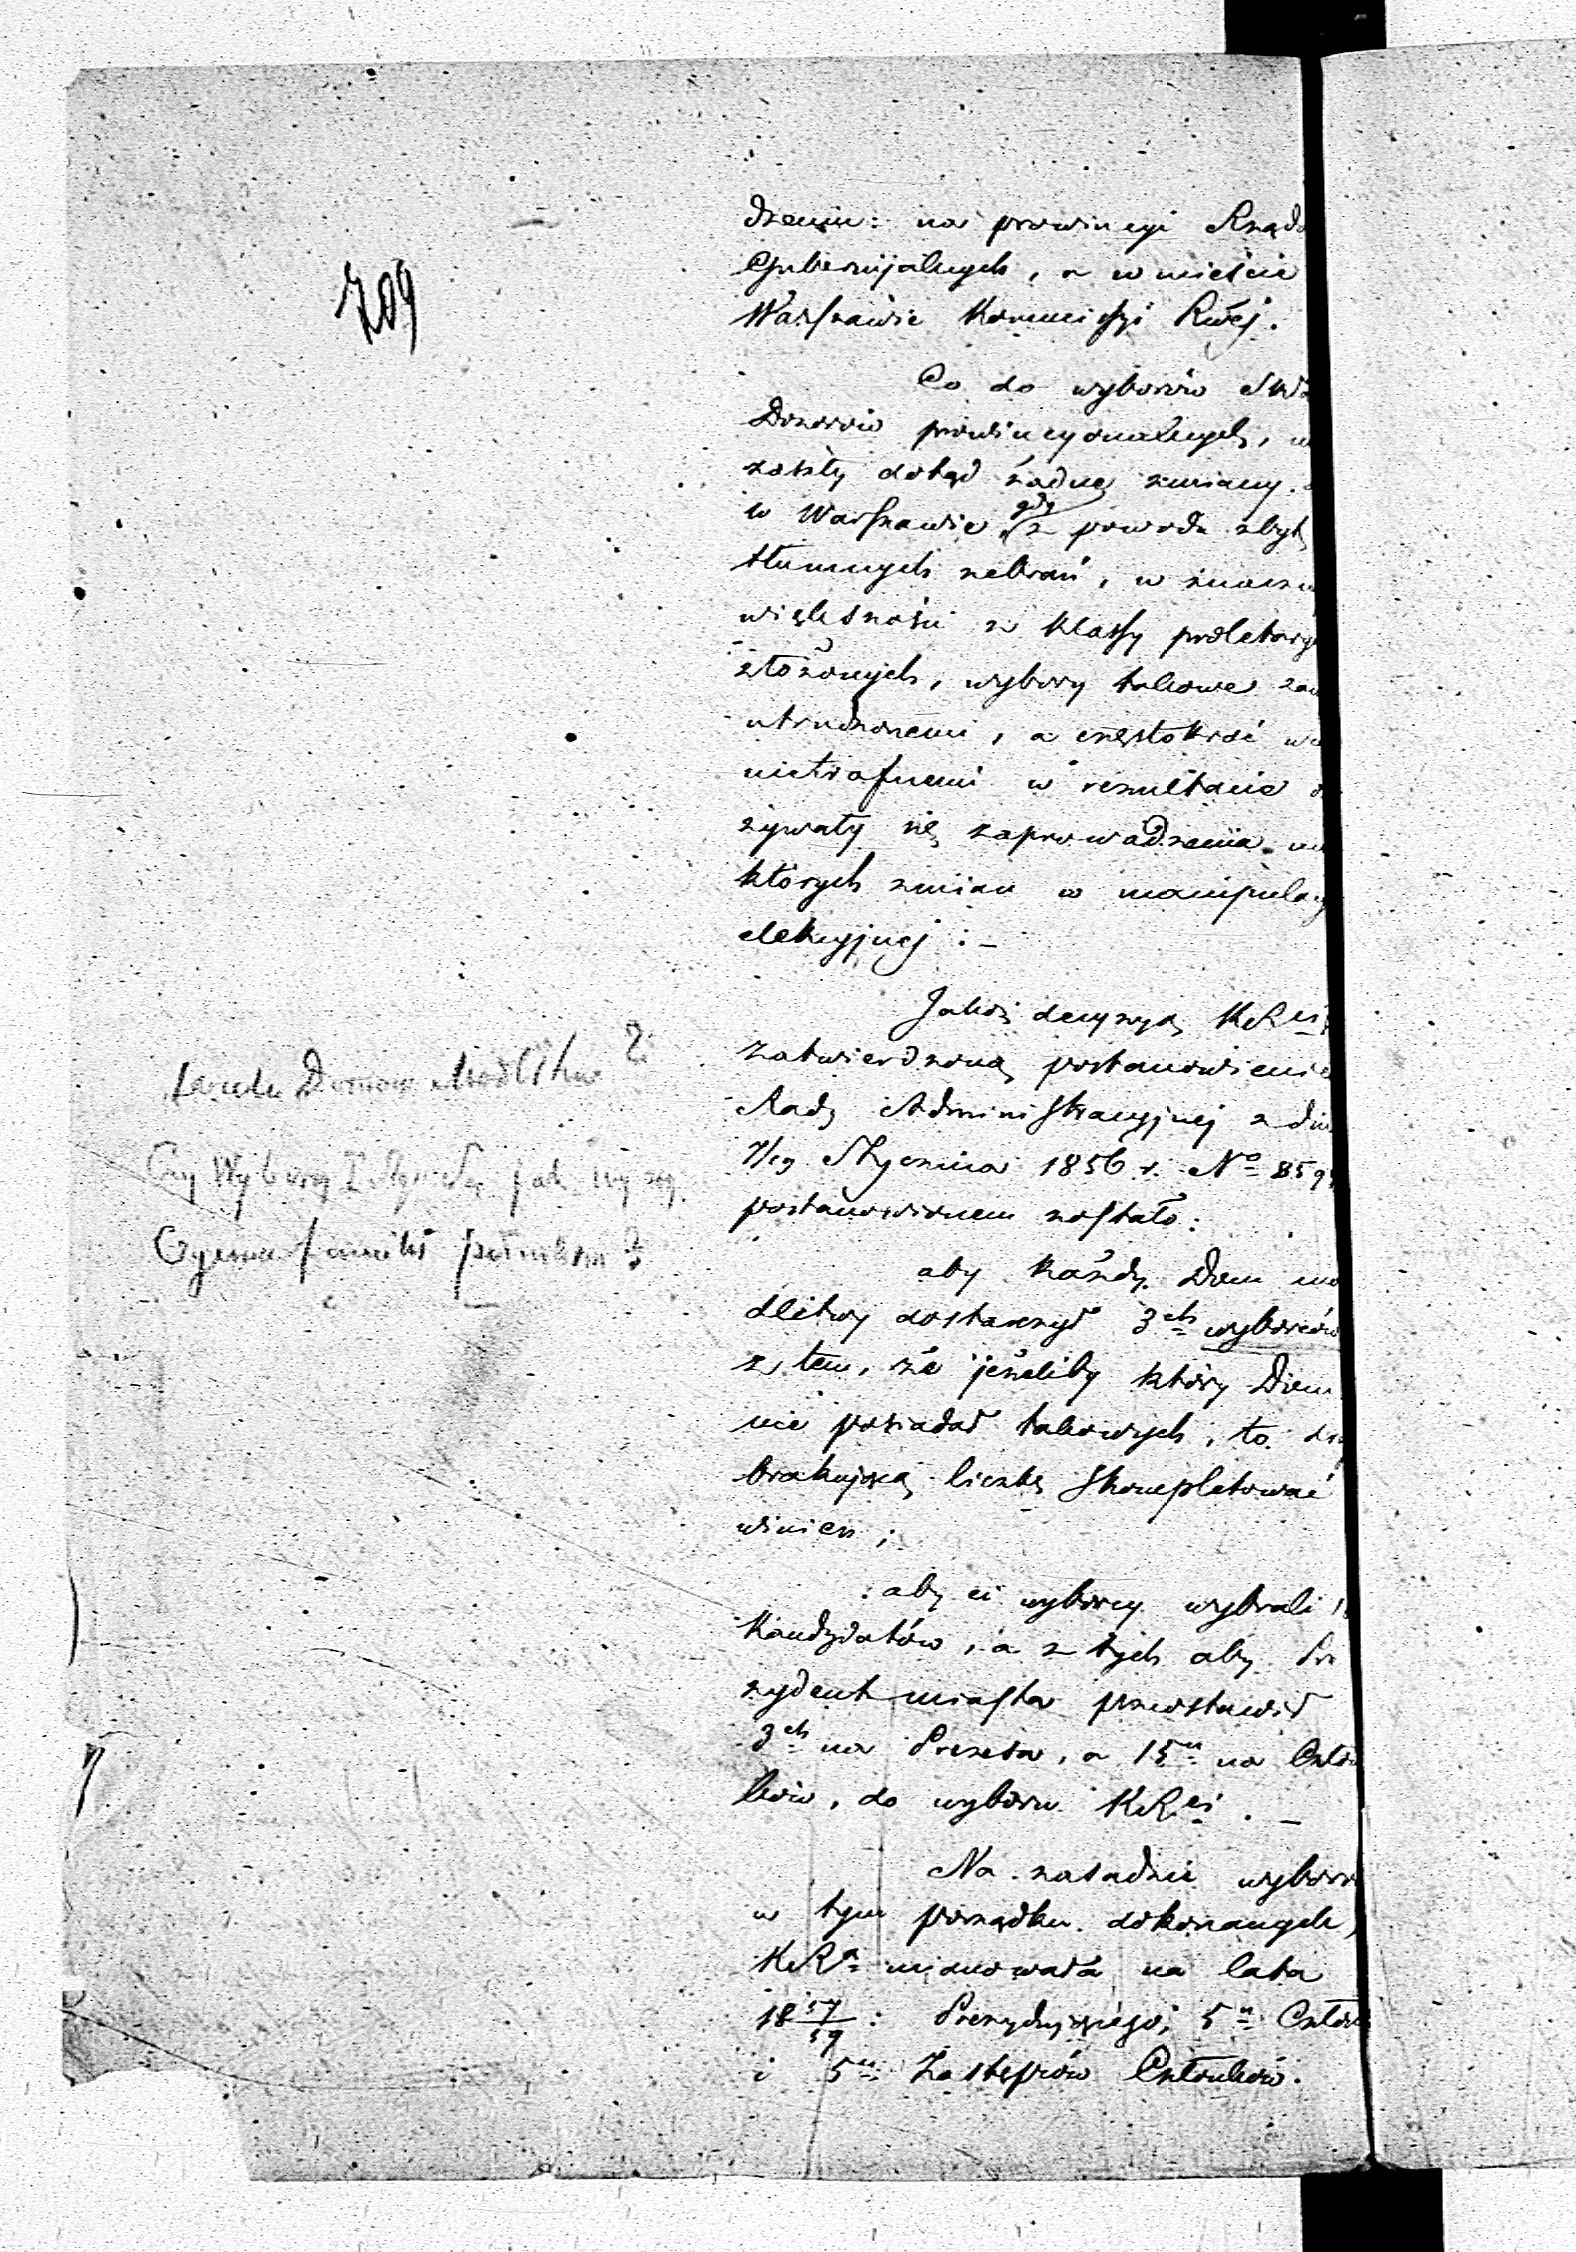 709
dzeniu: na prowincyi Rządo
Gubernijalnych, a w mieście
Warszawie Kommissyi Rwej.
Co do wyborów
Dozorów prowincyonalnych,
zaszły dotąd żadne zmiany.
w Warszawie, gdy z powodu zbyt
tłumnych zebrań, w znaczn
większości z klassy proletary
złożonych, wybory takowe
utrudzonemi, a częstokroć
nietrafnemi w rezultacie
zywały się zaprowadzenia
których zmian w manipulacy
elekcyjnej: –
Jakoż decyzyą KR
zatwierdzoną postanowienie
Rady Administracyjnej z dn
7/19 Stycznia 1856 r. No 859
postanowionem zostało:
ile Domów Modlitw?
Czy Wybory
Czynna pełnili?
aby każdy Dom mo
dlitwy dostarczył 3ch wyborców
z tem, że jeżeliby który Dom
nie posiadał takowych, to
brakującą liczbę skompletować
winien;
aby ci wyborcy wybrali
Kandydatów, a z tych aby Pre
zydent miasta przedstawił
3ch na Prezesa, a 15u na Człon
ków, do wyboru KRei. –
Na zasadzie wyboró
w tym porządku dokonanych,
KRa mianowała na lata
18 57/59: Prezydującego, 5u Człon
i 5u Zastępców Członków.